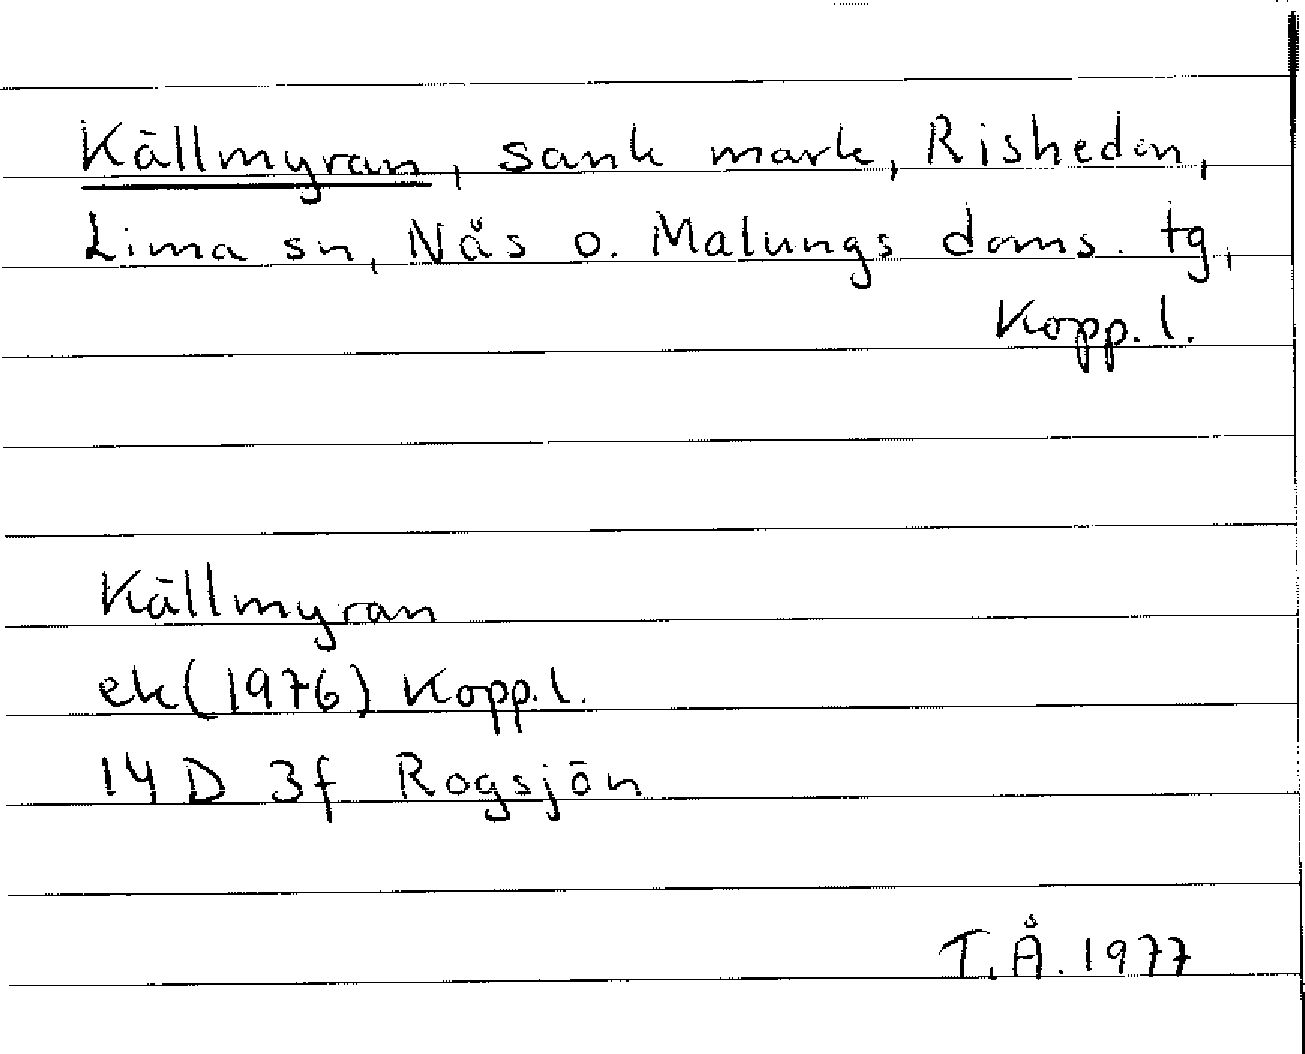 Källmyran, sank mark, Risheden,
Lima sn, Nås o. Malungs doms. tg,
Kopp. l.
Källmyran
ek (1976) Kopp. l.
14 D 3f Rogsjön
T. Å. 1977